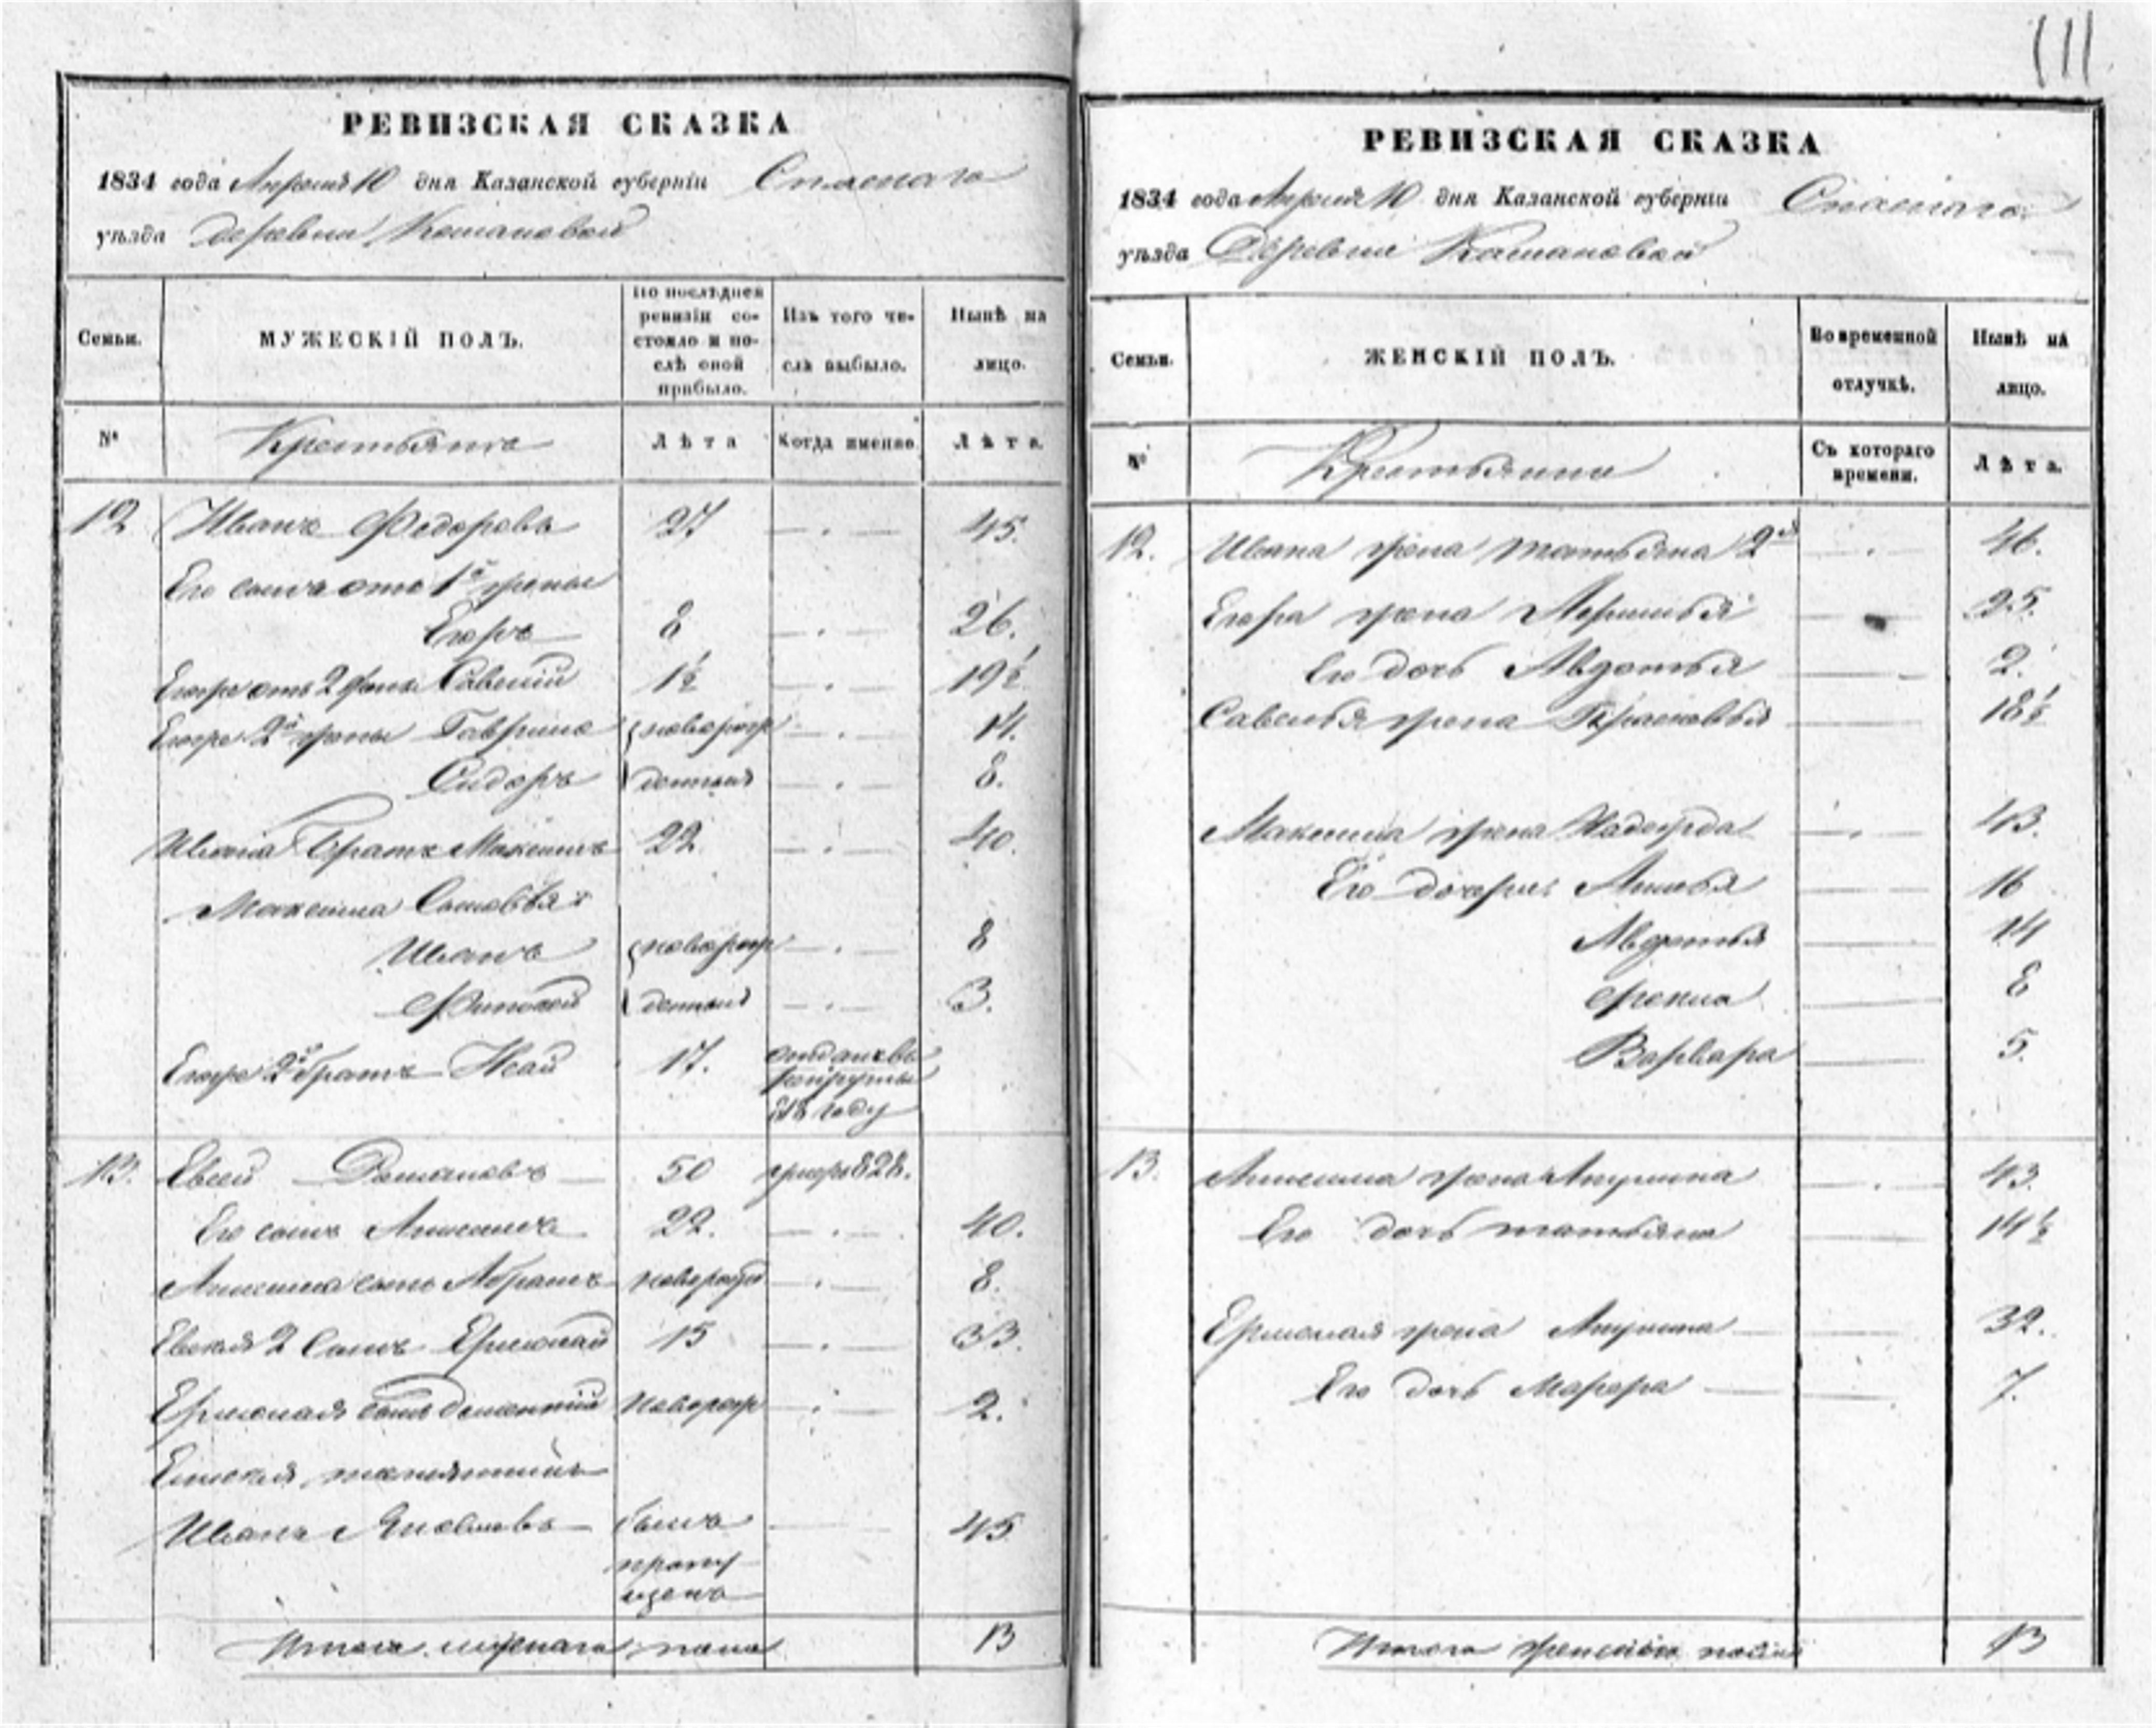 111
РЕВИЗСКАЯ СКАЗКА
1834 года Апреля 10 дня Казанской губерніи Спаскаго
уѣзда деревни Кошановой
Семьи.
МУЖЕСКІЙ ПОЛЪ.
По послѣдней ревизіи состояло и послѣ оной прибыло.
Изъ того числа выбыло.
Нынѣ на лицо.
№
Крестьяне
Лѣта
Когда именно.
Лѣта.
12 Иванъ Федоровъ 27 45.
Его сынъ отъ 1й жены
Егоръ 8 26.
от 2 жены Савелий 1½ 19½
2й жены Гаврила новорож 14.
Сидоръ денныя 8.
Ивана братъ Максимъ 22. 40.
Максима Сыновья
Иванъ новорож 8
денныя 3.
2й братъ 17. отданъ въ
рекруты
818 году
13. Евсей 50 умеръ 828.
Его сынъ Анисимъ 22. 40.
Анисима сынъ Абрамъ новорож 8.
2 Сынъ Ермолай 15 33.
Ермолая сынъ Дементий новорож 2.
Евсея племянникъ
Иванъ Яковлевъ былъ 45
пропу
щенъ
Итого мужеска пола 13
РЕВИЗСКАЯ СКАЗКА
1834 года Апреля 10 дня Казанской губерніи Спаскаго
уѣзда Деревни Кошановой
Семьи.
ЖЕНСКІЙ ПОЛЪ.
Во временной отлучкѣ.
Нынѣ на лицо.
№
Крестьянки
Съ котораго времени.
Лѣта.
12. Ивана жена Татьяна 2я 46.
Егора жена 25.
Его дочь Авдотья 2.
Савелья жена Прасковья 18½
Максима жена Надежда 43.
Его дочери 16
Авдотья 14
8
Варвара 5.
13. Анисима жена Акулина 43.
Его дочь Татьяна 14½
Ермолая жена Акулина 32.
Его дочь Марфа 7.
Итого женскаго пола 13